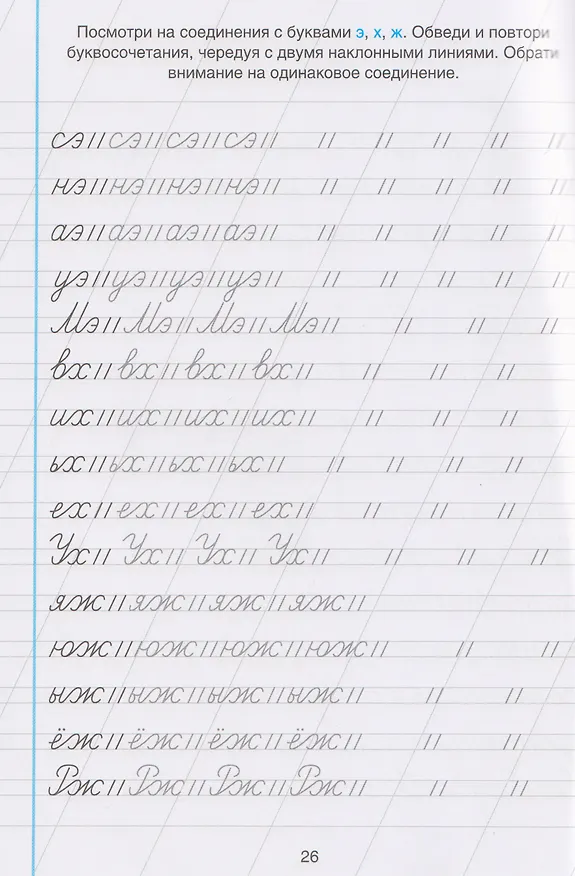 Посмотри на соединения с буквами э, х, ж. Обведи и повтори
буквосочетания, чередуя с двумя наклонными линиями. Обрати
внимание на одинаковое соединение.
сэ // сэ // сэ // сэ // // // // // //
нэ // нэ // нэ // нэ // // // // // //
аэ // аэ // аэ // аэ // // // // // //
уэ // уэ // уэ // уэ // // // // // //
Мэ // Мэ // Мэ // Мэ // // // //
вх // вх // вх // вх // // // //
их // их // их // их // // // //
ьх // ьх // ьх // ьх // // // // //
ех // ех // ех // ех // // // //
Ух // Ух // Ух // Ух // // // //
яж // яж // яж // яж //
юж // юж // юж // юж // // //
ыж // ыж // ыж // ыж // // //
ёж // ёж // ёж // ёж // // //
Рж // Рж // Рж // Рж // // //
26